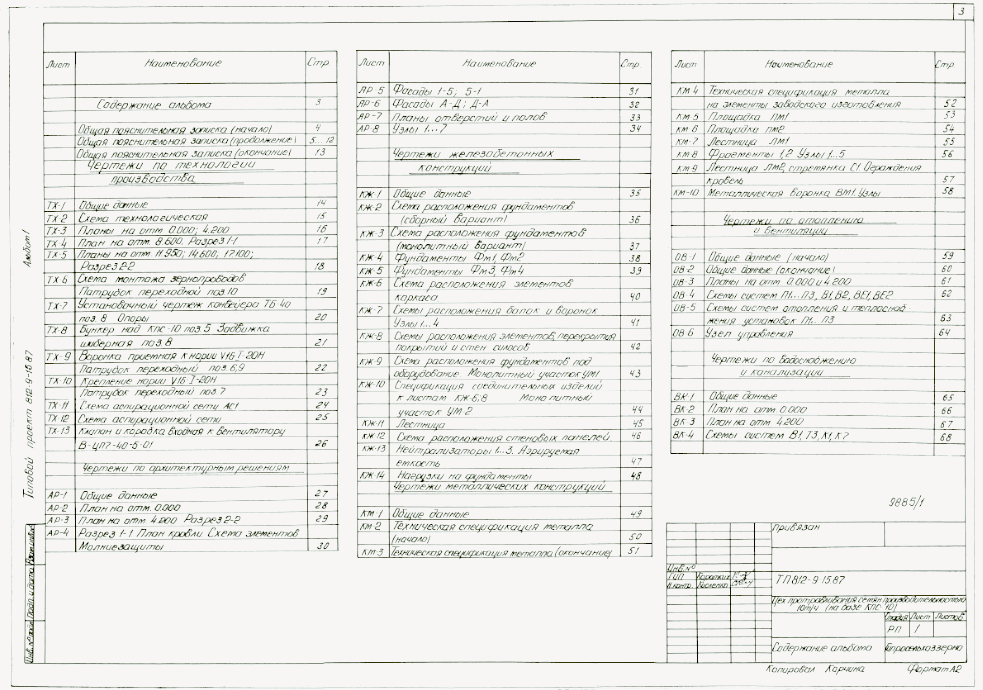 3
Лист Наименование Стр
Содержание альбома 3
Общая пояснительная записка (начало) 4
Общая пояснительная записка (продолжение) 5...12
Общая пояснительная записка (окончание) 13
Чертежи по технологии
производства
ТХ-1 Общие данные 14
ТХ-2 Схема технологическая 15
ТХ-3 Планы на отм. 0.000; 4.200 16
ТХ 4 План на отм. 8.600. Разрез 1-1 17
ТХ-5 Планы на отм. 11 950; 14,600, 17.100;
Разрез 2-2 18
ТХ 6 Схема монтажа зернопроводов
Патрубок переходной поз.10 19
ТХ-7 Установочный чертеж конвейера ТБ 40
поз. 8 Опоры 20
ТХ-8 Бункер над КПС-10 поз. 5 Задвижка
шиберная поз. 8 21
ТХ-9 Воронка приемная к нории V16 I-20Н
Патрубок переходный поз. 6,9 22
ТХ-10 Крепление нории V16 I-20Н
Патрубок переходный поз. 7 23
ТХ-11 Схема аспирационной сети АС1 24
ТХ 12 Схема аспирационной сети 25
ТХ-13 Циклон и коробка входная к вентилятору
В-ЦП7-40-5-01 26
Чертежи по архитектурным решениям
АР-1 Общие данные 27
АР-2 План на отм. 0.000 28
АР-3 План на отм. 4.200 Разрез 2-2 29
АР-4 Разрез 1-1 План кровли Схема элементов
Молниезащиты 30
Лист Наименование Стр
АР-5 Фасады 1-5; 5-1 31
АР-6 Фасады А-Д; Д-А 32
АР-7 Планы отверстий и полов 33
АР-8 Узлы 1...7 34
Чертежи железобетонных
конструкций
КЖ-1 Общие данные 35
КЖ-2 Схема расположения фундаментов
(сборный вариант) 36
КЖ-3 Схема расположения фундаментов
(монолитный вариант) 37
КЖ-4 Фундаменты Фм1, Фм2 38
КЖ-5 Фундаменты Фм3, Фм4 39
КЖ-6 Схема расположения элементов
каркаса 40
КЖ-7 Схемы расположения балок и воронок
Узлы 1...4 41
КЖ-8 Схемы расположения элементов, перекрытия
покрытий и стен силосов 42
КЖ-9 Схема расположения фундаментов под
оборудование Монолитный участок УМ1 43
КЖ-10 Спецификация соединительных изделий
к листам КЖ-6,8 Монолитный
участок УМ 2 44
КЖ-11 Лестница 45
КЖ-12 Схема расположения стеновых панелей. 46
КЖ-13 Нейтрализаторы 1...3. Аэрируемая
емкость 47
КЖ-14 Нагрузки на фундаменты 48
Чертежи металлических конструкций
КМ 1 Общие данные 49
КМ-2 Техническая спецификация металла
(начало) 50
КМ-3 Техническая спецификация металла (окончание) 51
Лист Наименование Стр
КМ 4 Техническая спецификация металла
на элементы заводского изготовления 52
КМ-5 Площадка ПМ1 53
КМ 6 Площадка ПМ2 54
КМ-7 Лестница ЛМ1 55
КМ-8 Фрагменты 1,2 Узлы 1...5 56
КМ-9 Лестница ЛМ2, стремянка С1 Ограждения
кровель 57
КМ-10 Металлическая воронка ВМ1 Узлы 58
Чертежи по отоплению
и вентиляции
ОВ-1 Общие данные (начало) 59
ОВ-2 Общие данные (окончание) 60
ОВ-3 Планы на отм. 0.000 и 4.200 61
ОВ 4 Схемы систем П1...П3, В1, В2, ВЕ1, ВЕ2 62
ОВ-5 Схемы систем отопления и теплоснаб
жения установок П1...П3 63
ОВ-6 Узел управления 64
Чертежи по водоснабжению
и канализации
ВК-1 Общие данные 65
ВК-2 План на отм 0.000 66
ВК 3 План на отм 4.200 67
ВК-4 Схемы систем В1, Т3, К1, К? 68
Альбом 1
Типовой проект 812-9-15 87
9885/1
Привязан
Инв. №
ГИП
Н.контр.
ТП 812-9-15 87
Цех протравливания семян производительностью
10т/ч (на базе КПС 10)
Стадия Лист Листов
РП 1
Содержание альбома
Гипросельхоззерно
Копировал Корчина Формат А2